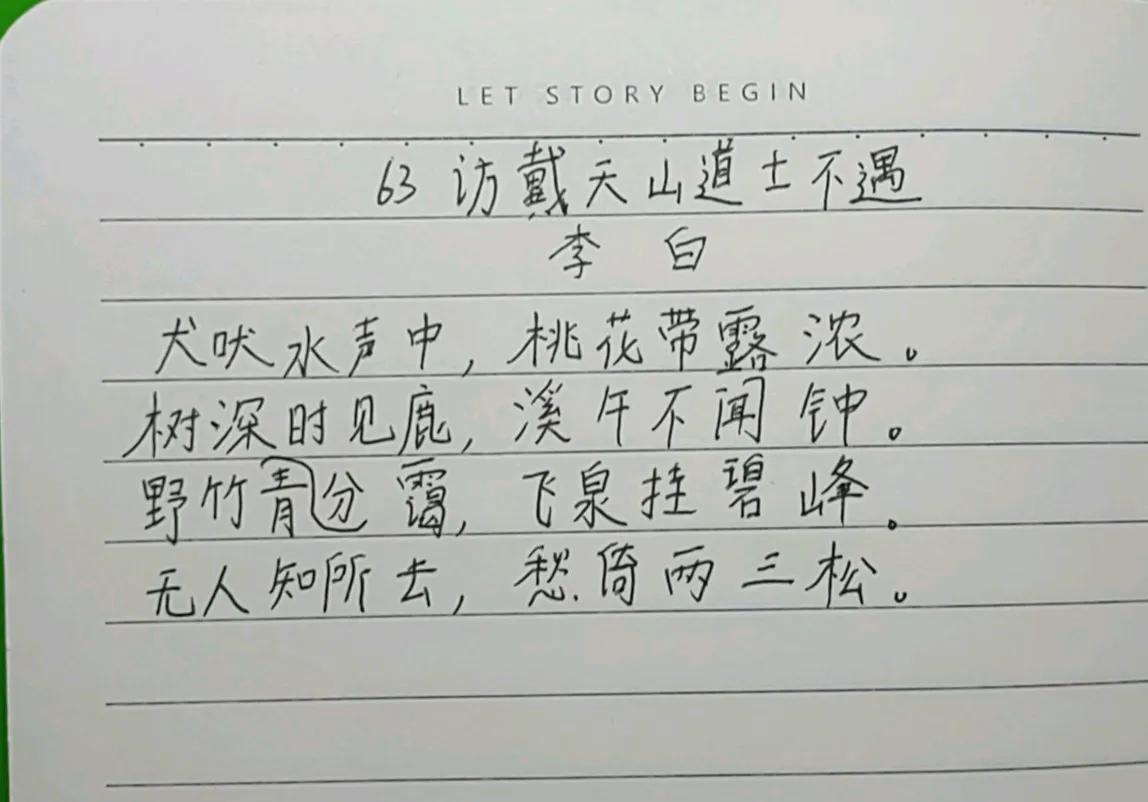 LET STORY BEGIN
63 访戴天山道士不遇
李 白
犬吠水声中，桃花带露浓。
树深时见鹿，溪午不闻钟。
野竹青分霭，飞泉挂碧峰。
无人知所去，愁倚两三松。